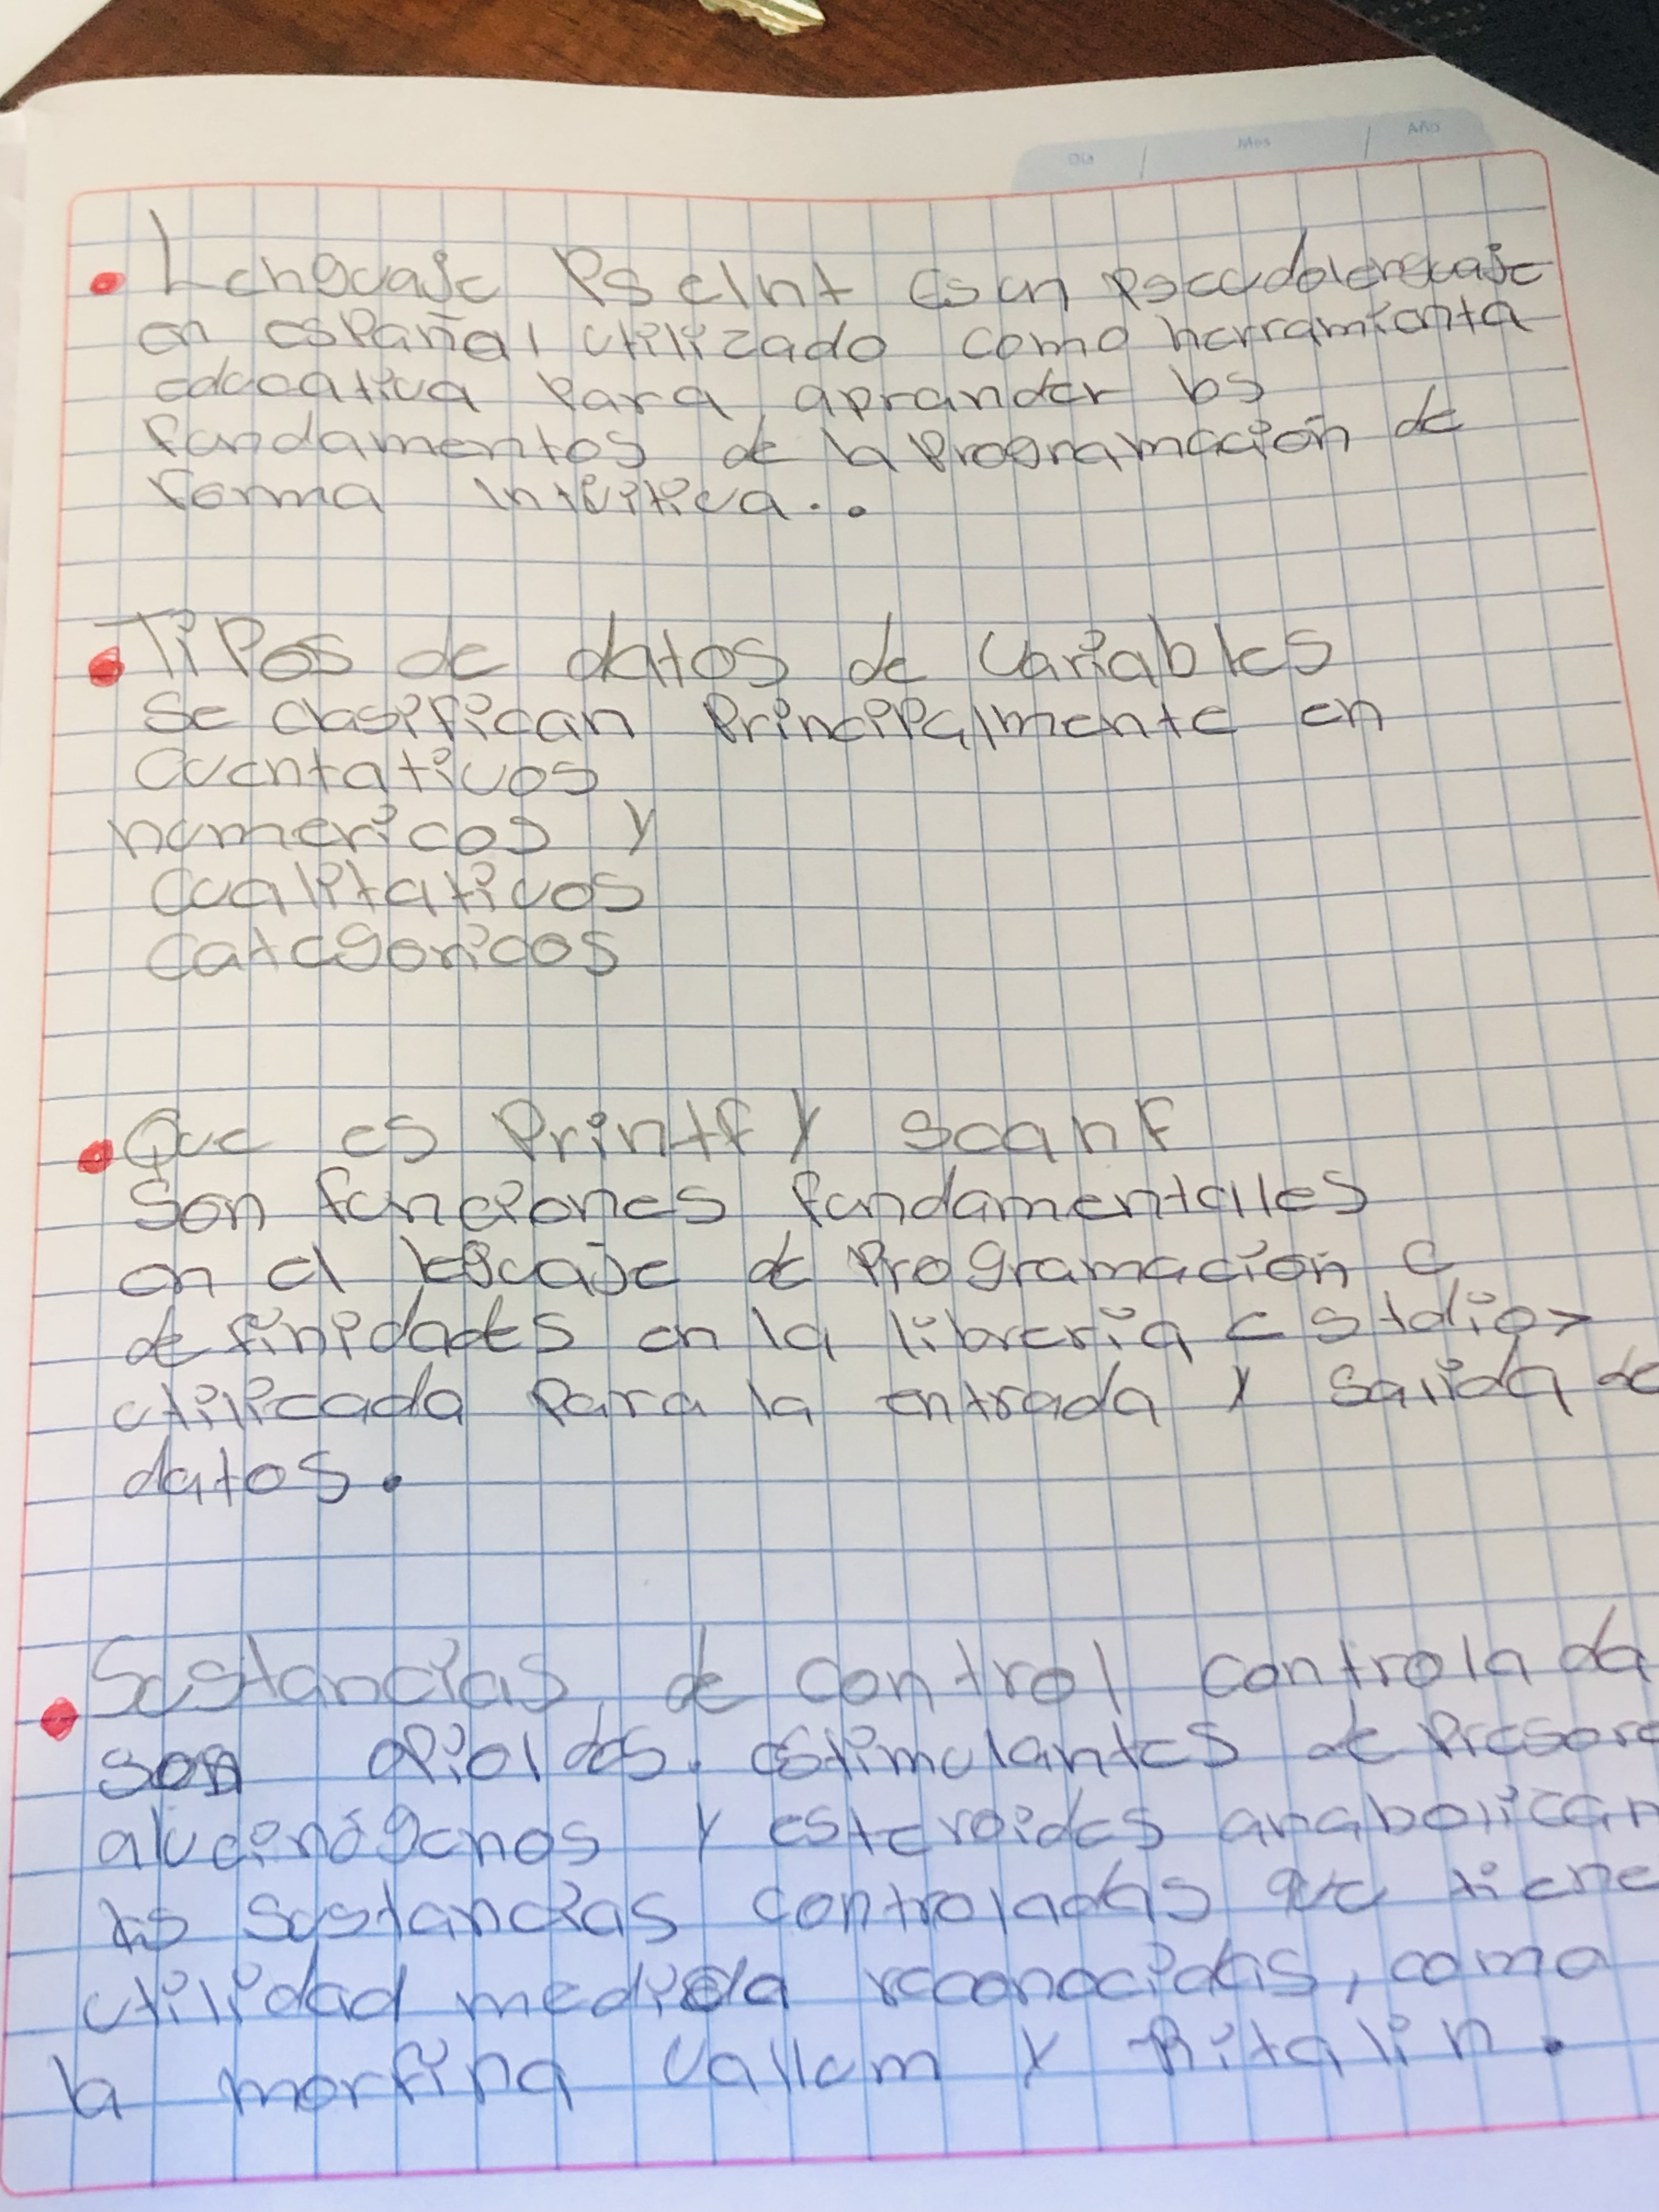 Dia Mes Año
Lenguaje PseInt es un pseudolenguaje
en español utilizado como herramienta
educativa para aprander los
fundamentos de la programación de
forma intuitiva..
Tipos de datos de variables
Se clasifican principalmente en
Cuentativos
numericos y
Cualitativos
categoricos
Que es Printf y scanf
Son funciones fundamentalles
en el leguaje de programación C
definidades en la libreria < stdio>
utilicada para la entrada y salida de
datos.
Sustancias de control controlada
son opioides. estimulantes depresore
alucinógenos y esteroides anabolican
las sustancias controladas que tiene
utilidad medica reconocidas, como
la morfina Valium y Ritalin.